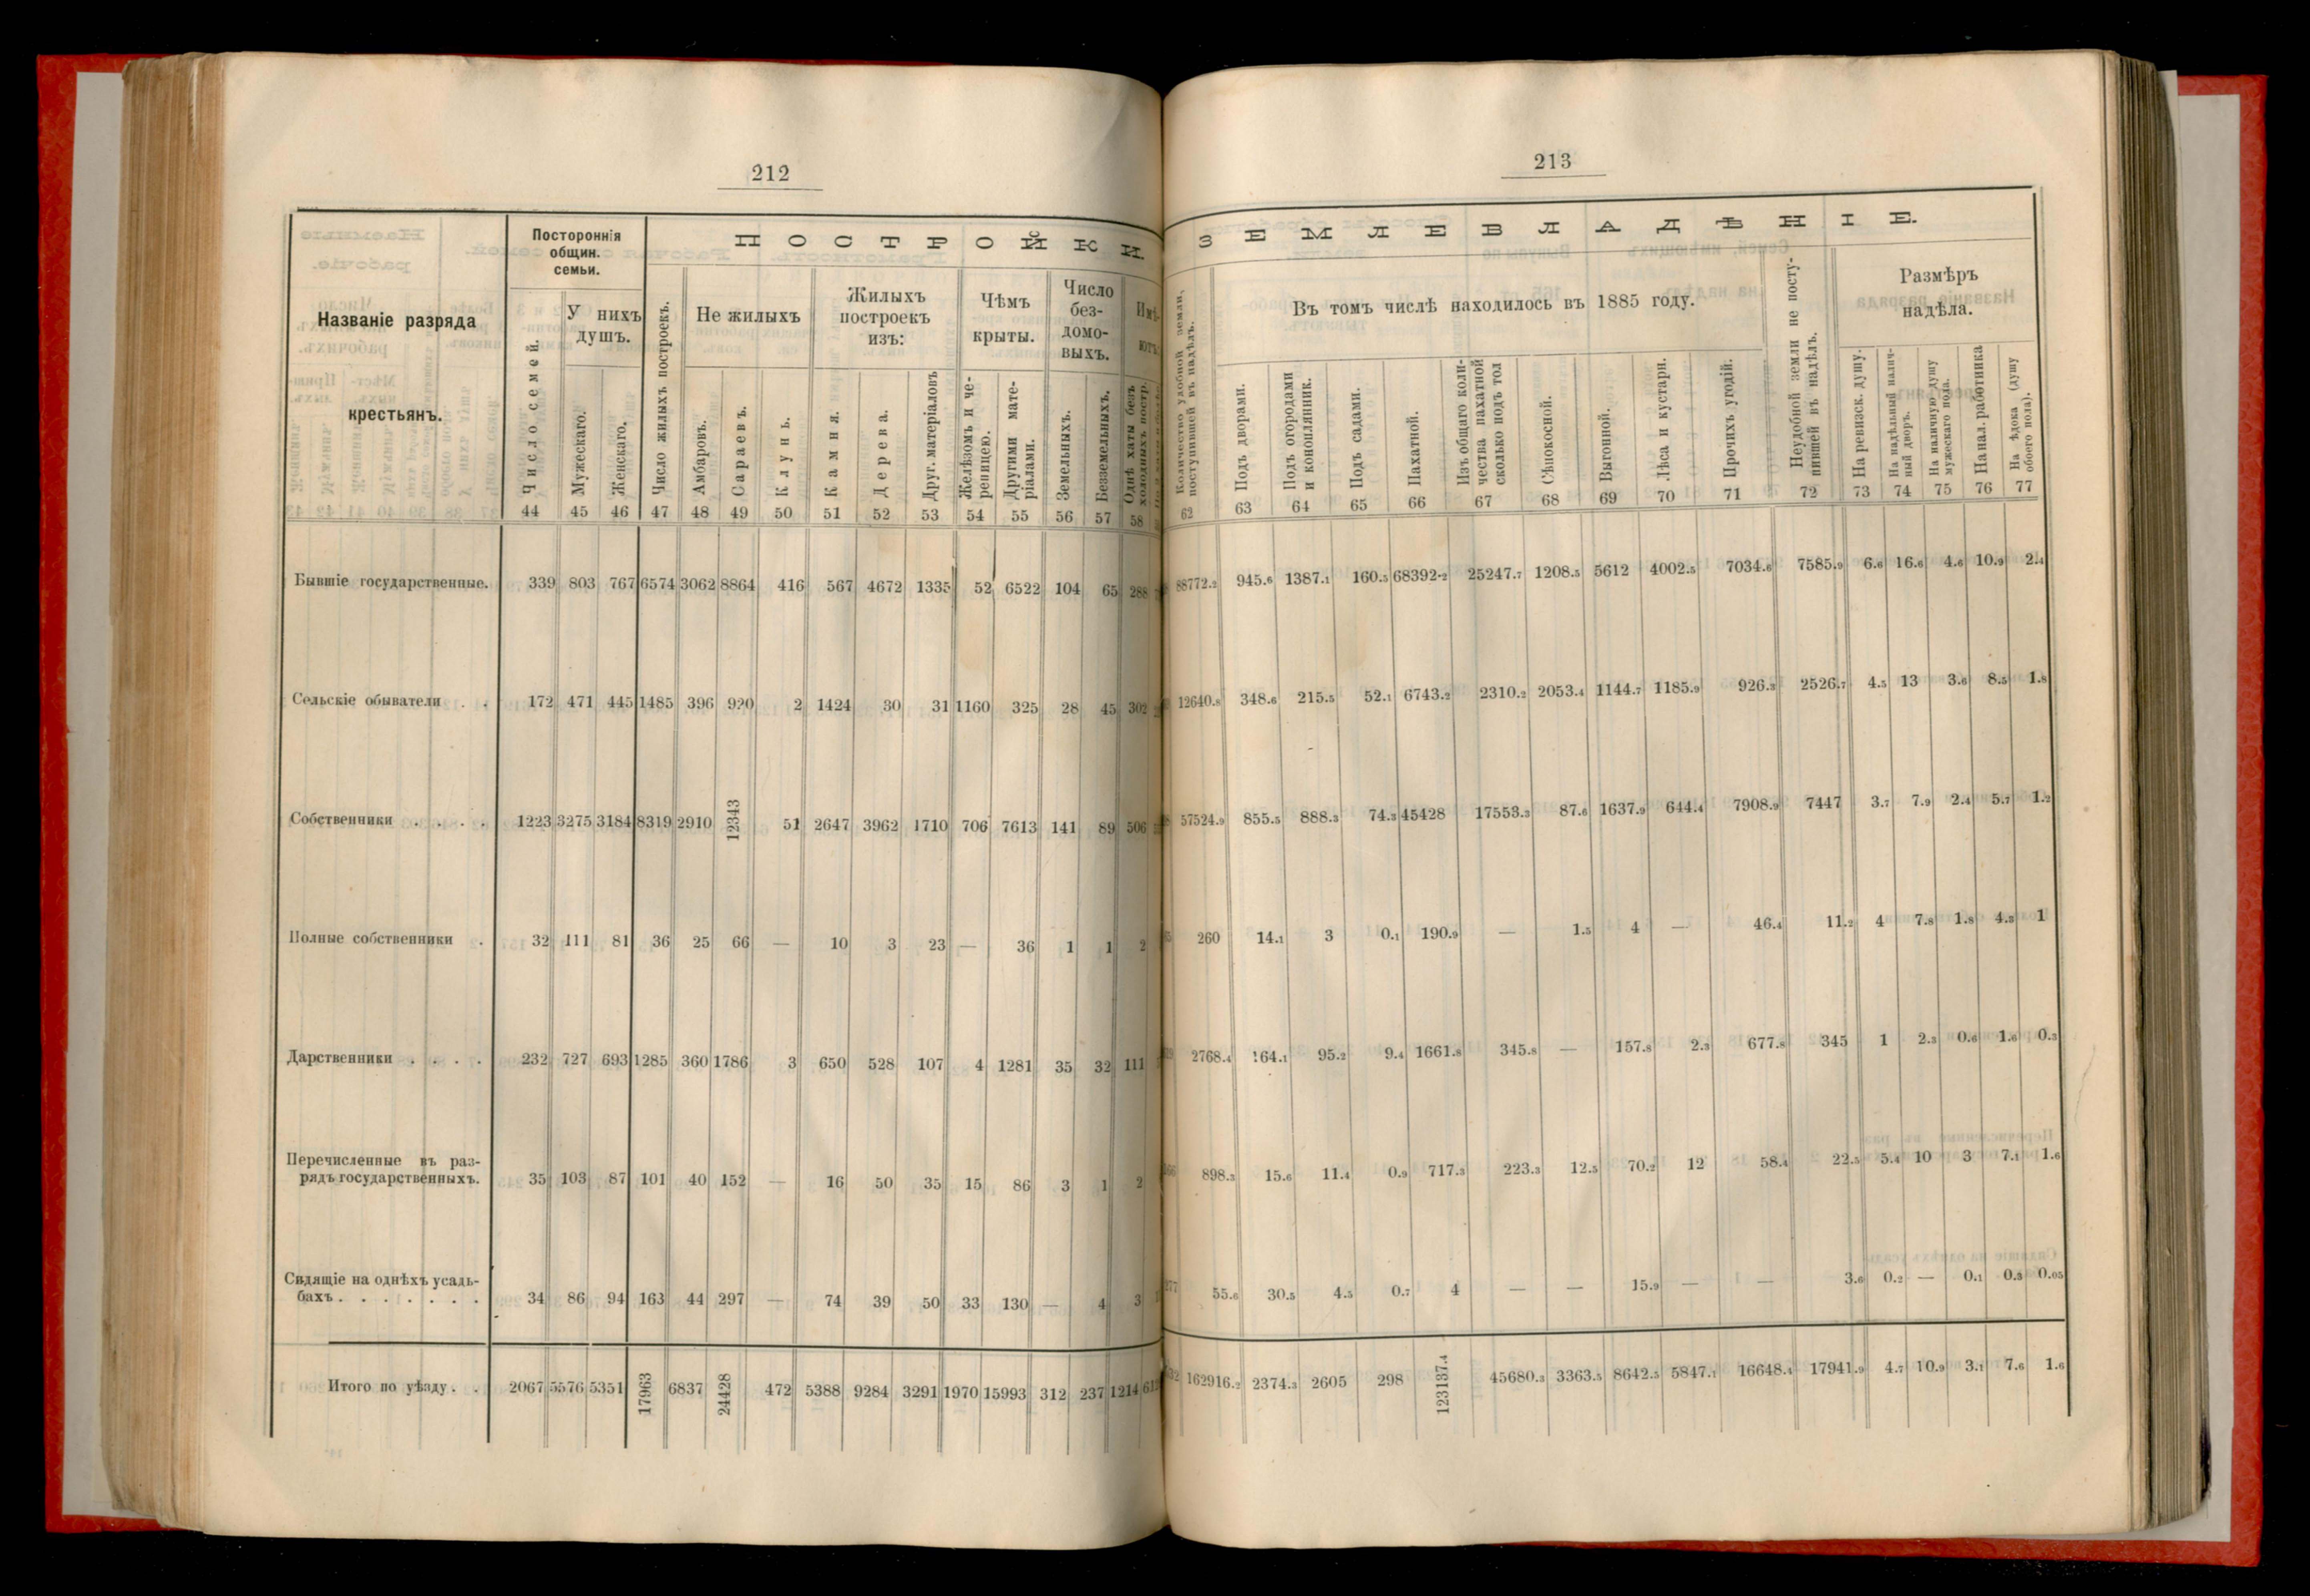 212
Постороннія
общин.
семьи.
ПОСТРОЙКИ.
Названіе разряда
крестьянъ.
Число семей.
У нихъ
душъ.
Мужескаго.
Женскаго.
Число жилыхъ построекъ.
Не жилыхъ
Амбаровъ.
Сараевъ.
Клунь.
Жилыхъ
построекъ
изъ:
Камня.
Дерева.
Друг. матеріаловъ
Чѣмъ
крыты.
Желѣзомъ и че-
репицею.
Другими мате-
ріалами.
Число
без-
домо-
выхъ.
Земельныхъ.
Безземельныхъ.
Имѣ-
ютъ:
Однѣ хаты безъ
холодныхъ постр.
44 45 46 47 48 49 50 51 52 53 54 55 56 57 58
Бывшіе государственные. 339 803 767 6574 3062 8864 416 567 4672 1335 52 6522 104 65 288
Сельскіе обыватели . . 172 471 445 1485 396 920 2 1424 30 31 1160 325 28 45 302
Собственники . . . . 1223 3275 3184 8319 2910 12343 51 2647 3962 1710 706 7613 141 89 506
Полные собственники . 32 111 81 36 25 66 — 10 3 23 — 36 1 1 2
Дарственники . . . . 232 727 693 1285 360 1786 3 650 528 107 4 1281 35 32 111
Перечисленные въ раз-
рядъ государственныхъ. 35 103 87 101 40 152 — 16 50 35 15 86 3 1 2
Сидящіе на однѣхъ усадь-
бахъ . . . . . . . 34 86 94 163 44 297 — 74 39 50 33 130 — 4 3
Итого по уѣзду . . 2067 5576 5351 17963 6837 24428 472 5388 9284 3291 1970 15993 312 237 1214
213
ЗЕМЛЕВЛАДѢНІЕ.
Количество удобной земли,
поступившей въ надѣлъ.
Въ томъ числѣ находилось въ 1885 году.
Подъ дворами.
Подъ огородами
и конопляник.
Подъ садами.
Пахатной.
Изъ общаго коли-
чества пахатной
сколько подъ тол
Сѣнокосной.
Выгонной.
Лѣса и кустарн.
Прочихъ угодій.
Неудобной земли не посту-
пившей въ надѣлъ.
Размѣръ
надѣла.
На ревизск. душу.
На надѣльный налич-
ный дворъ.
На наличную душу
мужескаго пола.
На нал. работника
На ѣдока (душу
обоего пола).
62 63 64 65 66 67 68 69 70 71 72 73 74 75 76 77
88772.2 945.6 1387.1 160.5 68392.2 25247.7 1208.5 5612 4002.5 7034.6 7585.9 6.6 16.6 4.6 10.9 2.4
12640.8 348.6 215.5 52.1 6743.2 2310.2 2053.4 1144.7 1185.9 926.3 2526.7 4.5 13 3.6 8.5 1.8
57524.9 855.5 888.3 74.3 45428 17553.3 87.6 1637.9 644.4 7908.9 7447 3.7 7.9 2.4 5.7 1.2
260 14.1 3 0.1 190.9 — 1.5 4 — 46.4 11.2 4 7.8 1.8 4.3 1
2768.4 164.1 95.2 9.4 1661.8 345.8 — 157.8 2.3 677.8 345 1 2.3 0.6 1.6 0.3
898.3 15.6 11.4 0.9 717.3 223.3 12.5 70.2 12 58.4 22.5 5.4 10 3 7.1 1.6
55.6 30.5 4.5 0.7 4 — — 15.9 — — 3.6 0.2 — 0.1 0.3 0.05
162916.2 2374.3 2605 298 123137.4 45680.3 3363.5 8642.5 5847.1 16648.4 17941.9 4.7 10.9 3.1 7.6 1.6